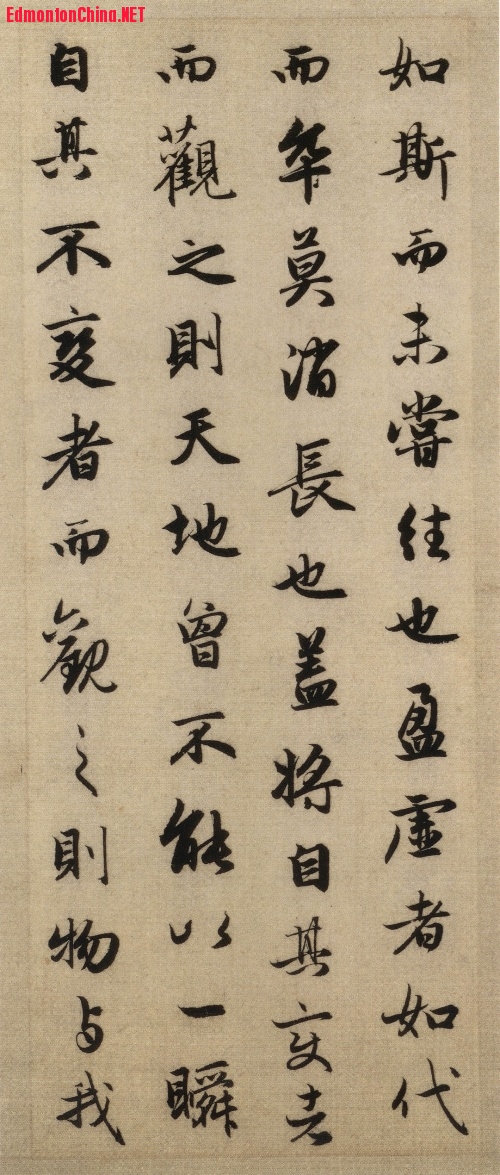 EdmontonChina.NET
如斯而未嘗往也盈虛者如代
而卒莫消長也蓋將自其變者
而觀之則天地曾不能以一瞬
自其不變者而觀之則物与我